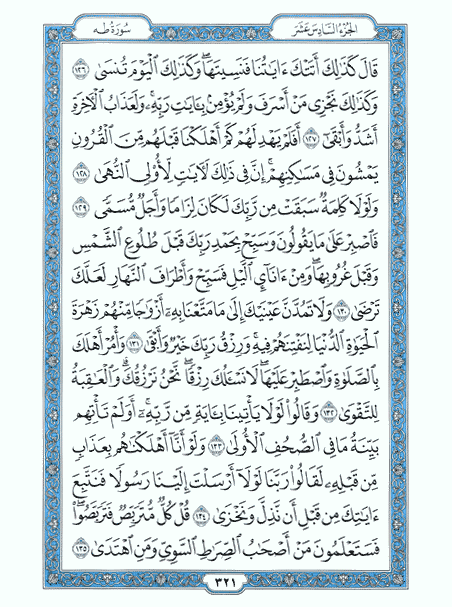 الجزء السادس عشر
سورة طه
قَالَ كَذَٰلِكَ أَتَتْكَ ءَايَٰتُنَا فَنَسِيتَهَا ۖ وَكَذَٰلِكَ ٱلْيَوْمَ تُنسَىٰ ١٢٦
وَكَذَٰلِكَ نَجْزِى مَنْ أَسْرَفَ وَلَمْ يُؤْمِنۢ بِـَٔايَٰتِ رَبِّهِۦ ۚ وَلَعَذَابُ ٱلْءَاخِرَةِ
أَشَدُّ وَأَبْقَىٰٓ ١٢٧ أَفَلَمْ يَهْدِ لَهُمْ كَمْ أَهْلَكْنَا قَبْلَهُم مِّنَ ٱلْقُرُونِ
يَمْشُونَ فِى مَسَٰكِنِهِمْ ۗ إِنَّ فِى ذَٰلِكَ لَءَايَٰتٍ لِّأُو۟لِى ٱلنُّهَىٰ ١٢٨
وَلَوْلَا كَلِمَةٌ سَبَقَتْ مِن رَّبِّكَ لَكَانَ لِزَامًا وَأَجَلٌ مُّسَمًّى ١٢٩
فَٱصْبِرْ عَلَىٰ مَا يَقُولُونَ وَسَبِّحْ بِحَمْدِ رَبِّكَ قَبْلَ طُلُوعِ ٱلشَّمْسِ
وَقَبْلَ غُرُوبِهَا ۖ وَمِنْ ءَانَآئِ ٱلَّيْلِ فَسَبِّحْ وَأَطْرَافَ ٱلنَّهَارِ لَعَلَّكَ
تَرْضَىٰ ١٣٠ وَلَا تَمُدَّنَّ عَيْنَيْكَ إِلَىٰ مَا مَتَّعْنَا بِهِۦٓ أَزْوَٰجًا مِّنْهُمْ زَهْرَةَ
ٱلْحَيَوٰةِ ٱلدُّنْيَا لِنَفْتِنَهُمْ فِيهِ ۚ وَرِزْقُ رَبِّكَ خَيْرٌ وَأَبْقَىٰ ١٣١ وَأْمُرْ أَهْلَكَ
بِٱلصَّلَوٰةِ وَٱصْطَبِرْ عَلَيْهَا ۖ لَا نَسْـَٔلُكَ رِزْقًا ۖ نَّحْنُ نَرْزُقُكَ ۗ وَٱلْعَٰقِبَةُ
لِلتَّقْوَىٰ ١٣٢ وَقَالُوا۟ لَوْلَا يَأْتِينَا بِـَٔايَةٍ مِّن رَّبِّهِۦٓ ۚ أَوَلَمْ تَأْتِهِم
بَيِّنَةُ مَا فِى ٱلصُّحُفِ ٱلْأُولَىٰ ١٣٣ وَلَوْ أَنَّآ أَهْلَكْنَٰهُم بِعَذَابٍ
مِّن قَبْلِهِۦ لَقَالُوا۟ رَبَّنَا لَوْلَآ أَرْسَلْتَ إِلَيْنَا رَسُولًا فَنَتَّبِعَ
ءَايَٰتِكَ مِن قَبْلِ أَن نَّذِلَّ وَنَخْزَىٰ ١٣٤ قُلْ كُلٌّ مُّتَرَبِّصٌ فَتَرَبَّصُوا۟ ۖ
فَسَتَعْلَمُونَ مَنْ أَصْحَٰبُ ٱلصِّرَٰطِ ٱلسَّوِىِّ وَمَنِ ٱهْتَدَىٰ ١٣٥
٣٢١